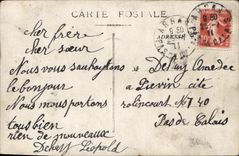 CARTE POSTALE
ADRESSE
cher frère
cher sœur
Nous vous sauhaytons
le bonjour
Nous nous portons
tous bien
rien de nouveaux
Léopold
a Lievin cité
rolincourt N° 40
Pas de Calais